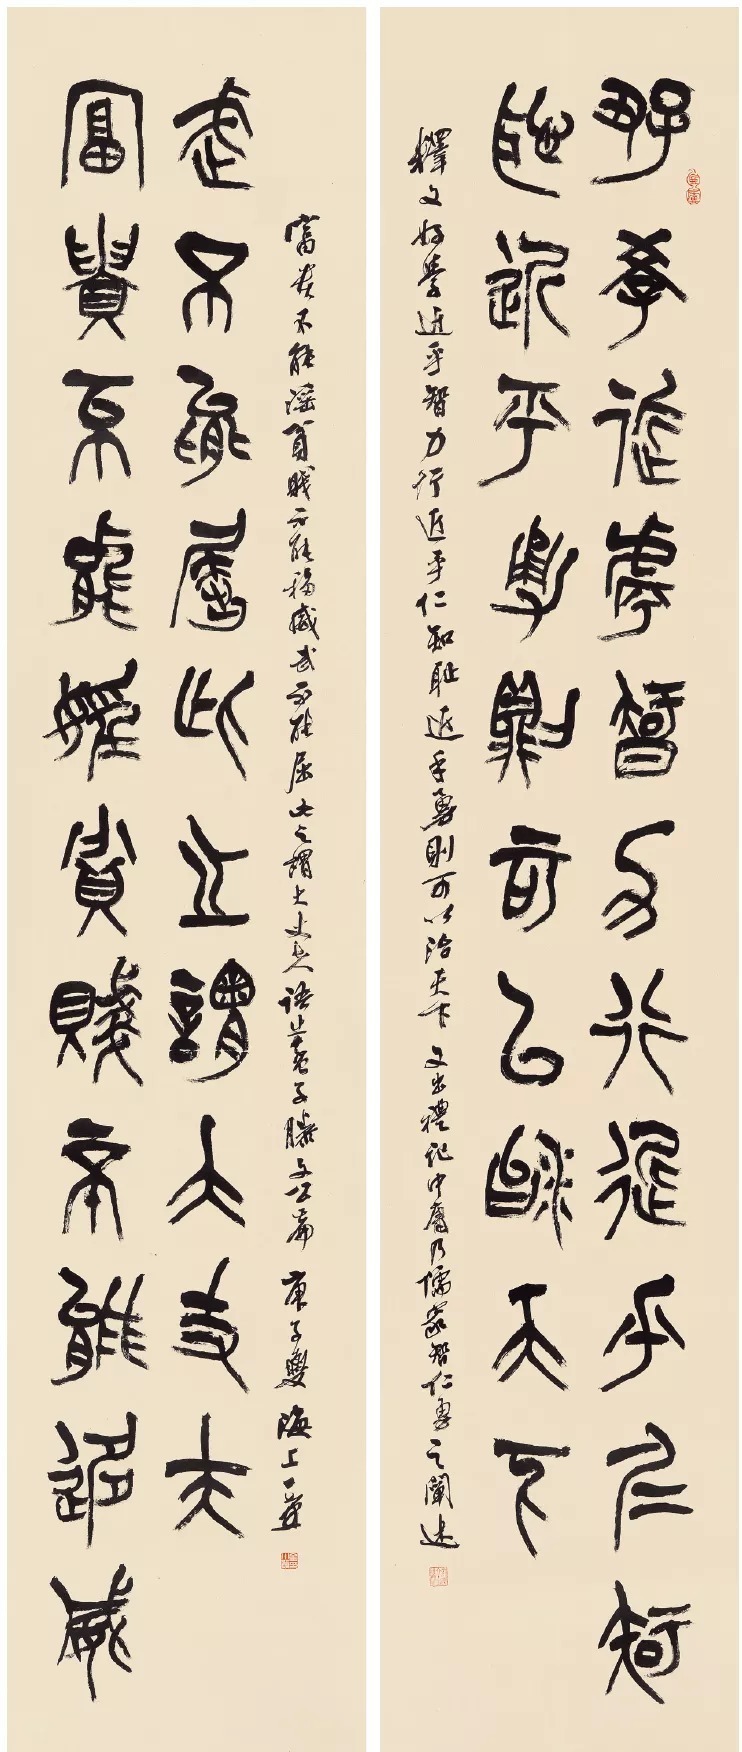 好學近乎智力行近乎仁知
恥近乎勇則可以治天下
釋文好學近乎智力行近乎仁知恥近乎勇則可以治天下 文出禮記中庸乃儒家智仁勇之闡述
富貴不能淫貧賤不能移威
武不能屈此之謂大丈夫
富貴不能淫貧賤不能移威武不能屈此之謂大丈夫語出孟子滕文公篇 庚子夏 海上